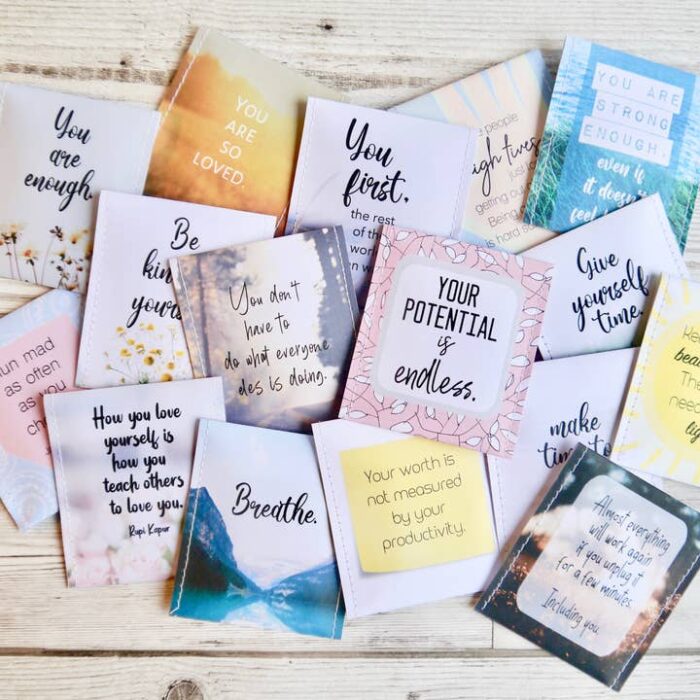 You
are
enough.
YOU
ARE
SO
LOVED.
You
first.
the rest
of th
wor
people
gh lives
just
getting ou
Being
is hard s
YOU ARE
STRONG
ENOUGH.
even if
it doesn't
feel
Be
kin
yours
You don't
have to
do what everyone
eles is doing.
YOUR
POTENTIAL
is
endless.
Give
yourself
time.
un mad
as often
as you
ch
How you love
yourself is
how you
teach others
to love you.
Rupi Kapur
Breathe.
Your worth is
not measured
by your
productivity.
make
time to
Ke
beau
Th
need
lig
Almost everything
will work again
if you unplug it
for a few minutes.
Including you.